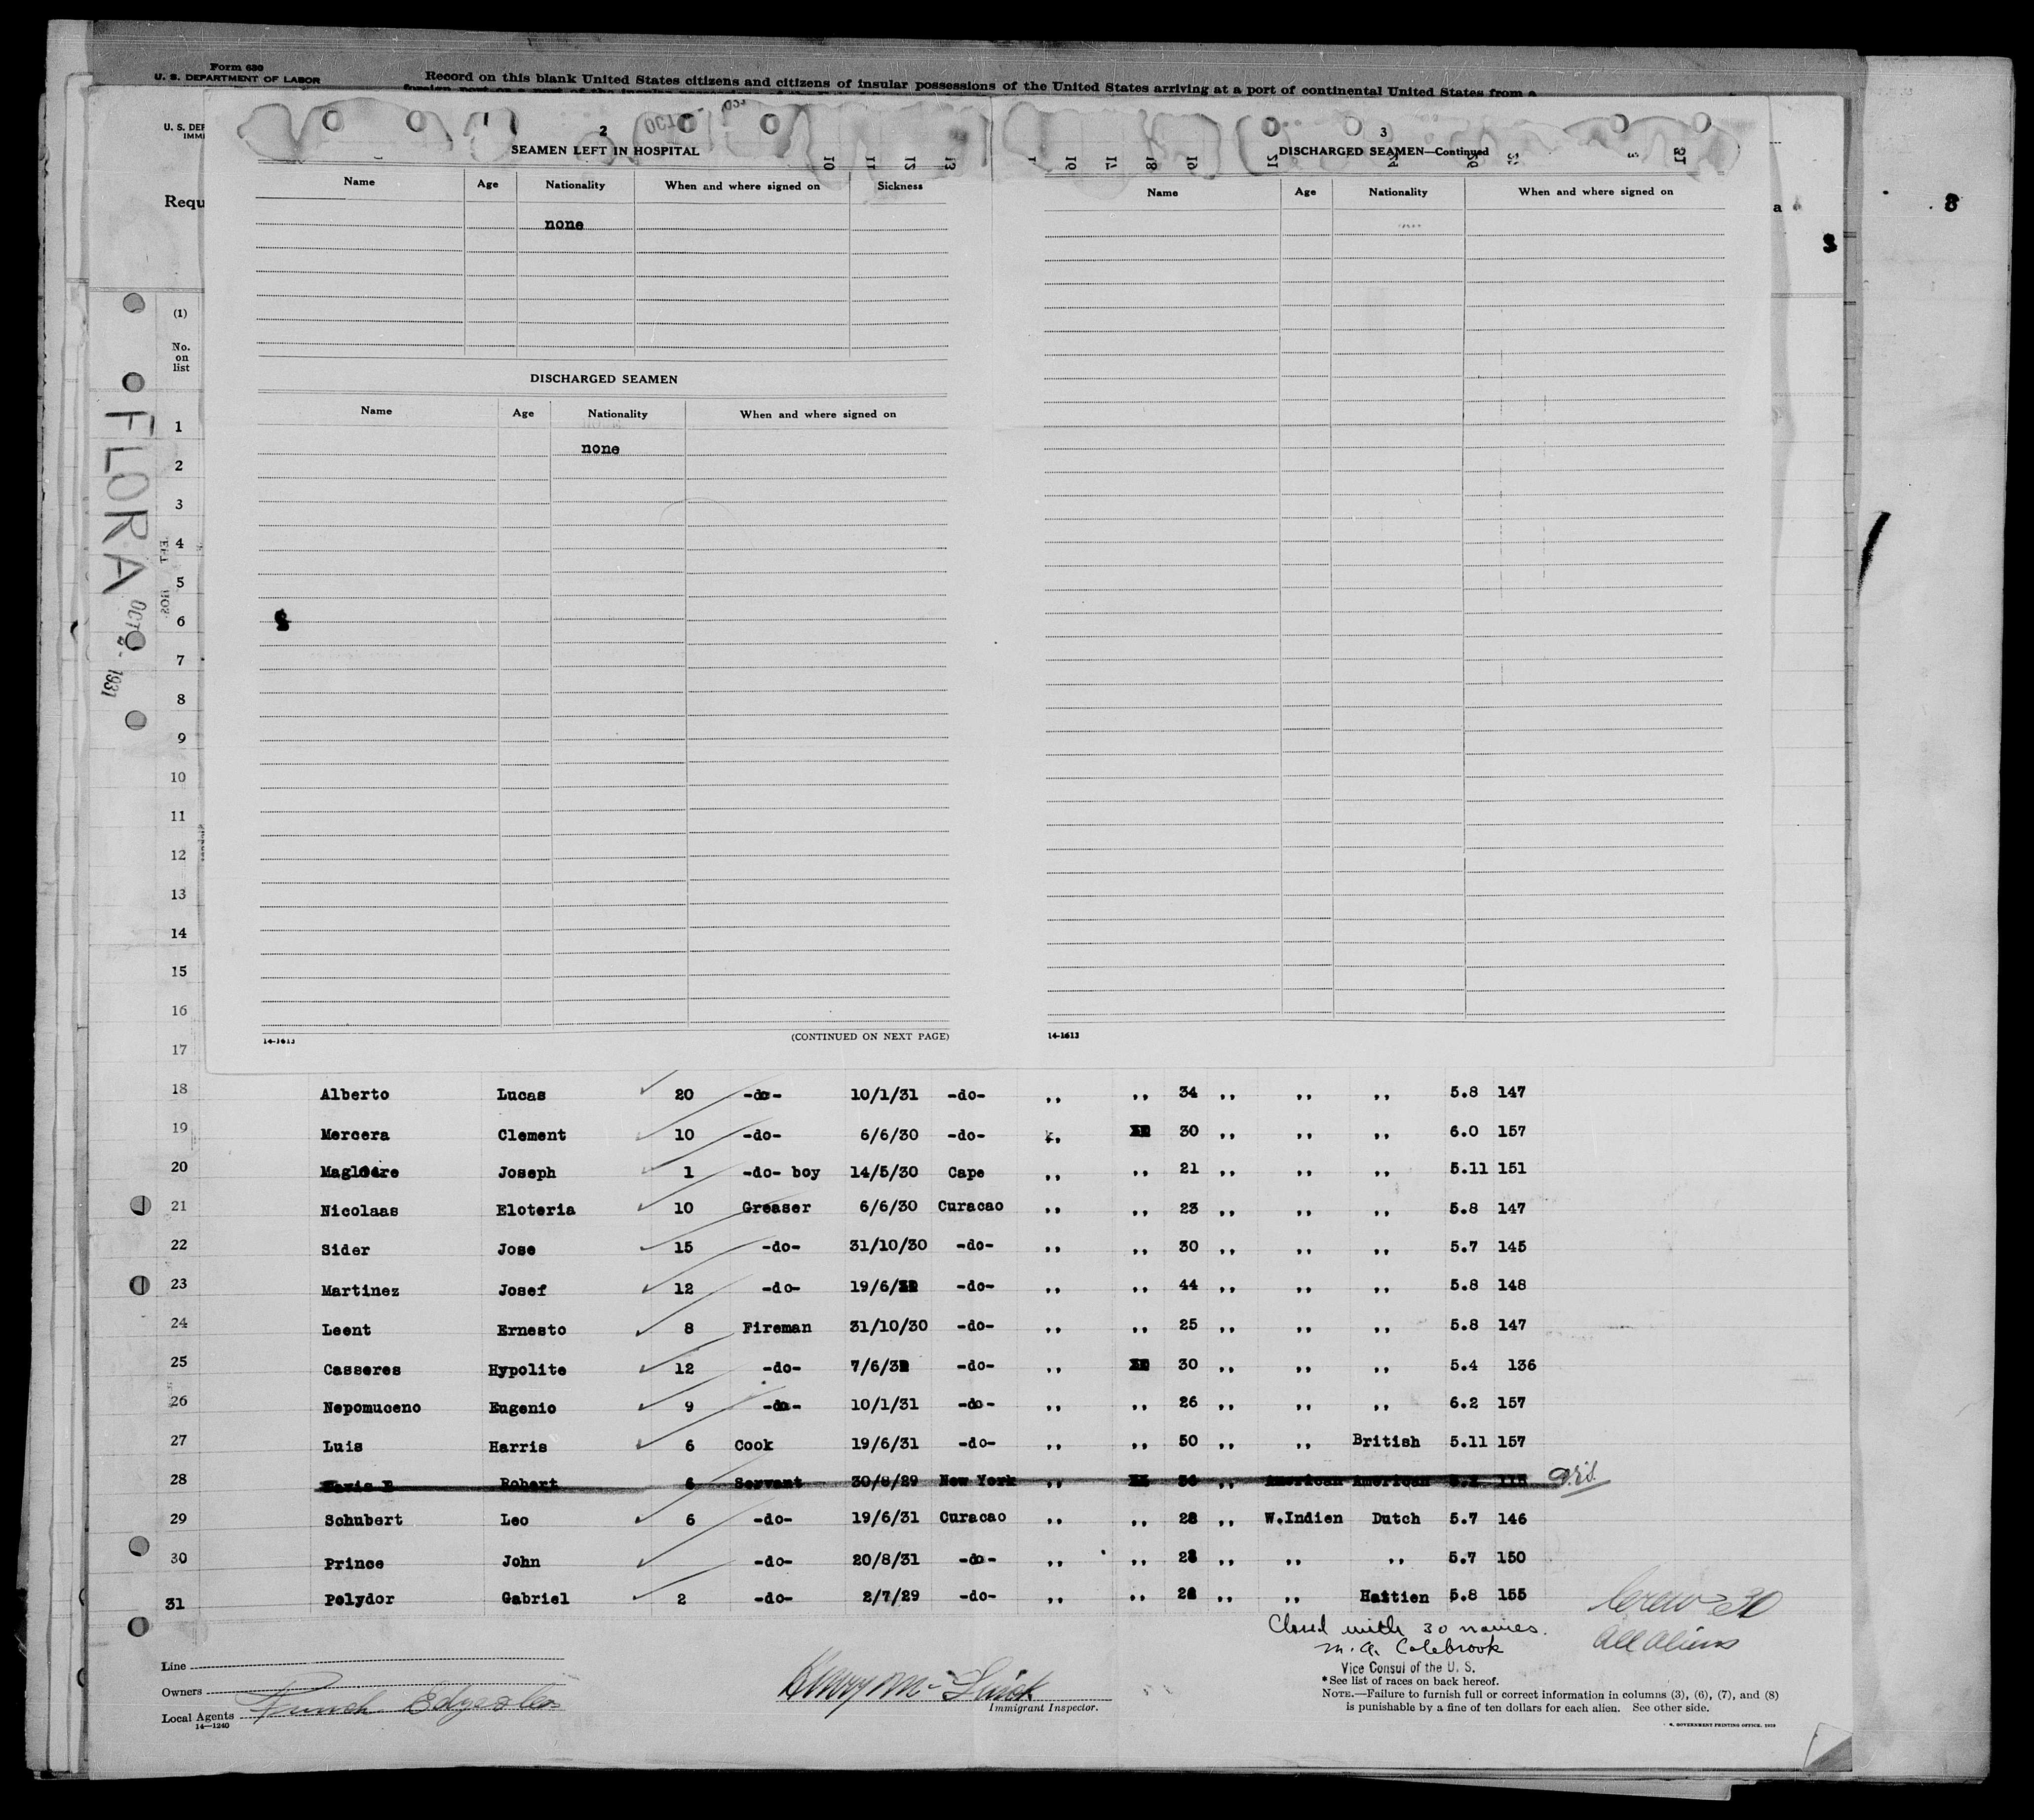 Form 630
U. S. DEPARTMENT OF LABOR
Record on this blank United States citizens and citizens of insular possessions of the United States arriving at a port of continental United States from a
U. S. DEP
IMMI
Requ
a
8
(1)
No.
on
list
FLORA
OCT 2 - 1931
2
SEAMEN LEFT IN HOSPITAL
Name Age Nationality When and where signed on Sickness
none
DISCHARGED SEAMEN
Name Age Nationality When and where signed on
none
14-1613
(CONTINUED ON NEXT PAGE)
3
DISCHARGED SEAMEN—Continued
Name Age Nationality When and where signed on
14-1613
1
2
3
4
5
6
7
8
9
10
11
12
13
14
15
16
17
18 Alberto Lucas 20 -do- 10/1/31 -do- ,, ,, 34 ,, ,, ,, 5.8 147
19 Mercera Clement 10 -do- 6/6/30 -do- ,, 30 ,, ,, ,, 6.0 157
20 Magloire Joseph 1 -do- boy 14/5/30 Cape ,, ,, 21 ,, ,, ,, 5.11 151
21 Nicolaas Eloteria 10 Greaser 6/6/30 Curacao ,, ,, 23 ,, ,, ,, 5.8 147
22 Sider Jose 15 -do- 31/10/30 -do- ,, ,, 30 ,, ,, ,, 5.7 145
23 Martinez Josef 12 -do- 19/6/ -do- ,, ,, 44 ,, ,, ,, 5.8 148
24 Leent Ernesto 8 Fireman 31/10/30 -do- ,, ,, 25 ,, ,, ,, 5.8 147
25 Casseres Hypolite 12 -do- 7/6/3 -do- ,, 30 ,, ,, ,, 5.4 136
26 Nepomuceno Eugenio 9 -do- 10/1/31 -do- ,, ,, 26 ,, ,, ,, 6.2 157
27 Luis Harris 6 Cook 19/6/31 -do- ,, ,, 50 ,, ,, British 5.11 157
28 Robert 6 Servant 30/8/29 New York ,, ,, American American
29 Schubert Leo 6 -do- 19/6/31 Curacao ,, ,, 28 ,, W.Indien Dutch 5.7 146
30 Prince John -do- 20/8/31 -do- ,, ,, 28 ,, ,, ,, 5.7 150
31 Polydor Gabriel 2 -do- 2/7/29 -do- ,, ,, ,, ,, Haitien 5.8 155
Crew 30
all aliens
Closed with 30 names.
M. A. Colebrook
Vice Consul of the U. S.
*See list of races on back hereof.
NOTE.—Failure to furnish full or correct information in columns (3), (6), (7), and (8)
is punishable by a fine of ten dollars for each alien. See other side.
Line
Owners
Local Agents
14—1240
Immigrant Inspector.
GOVERNMENT PRINTING OFFICE